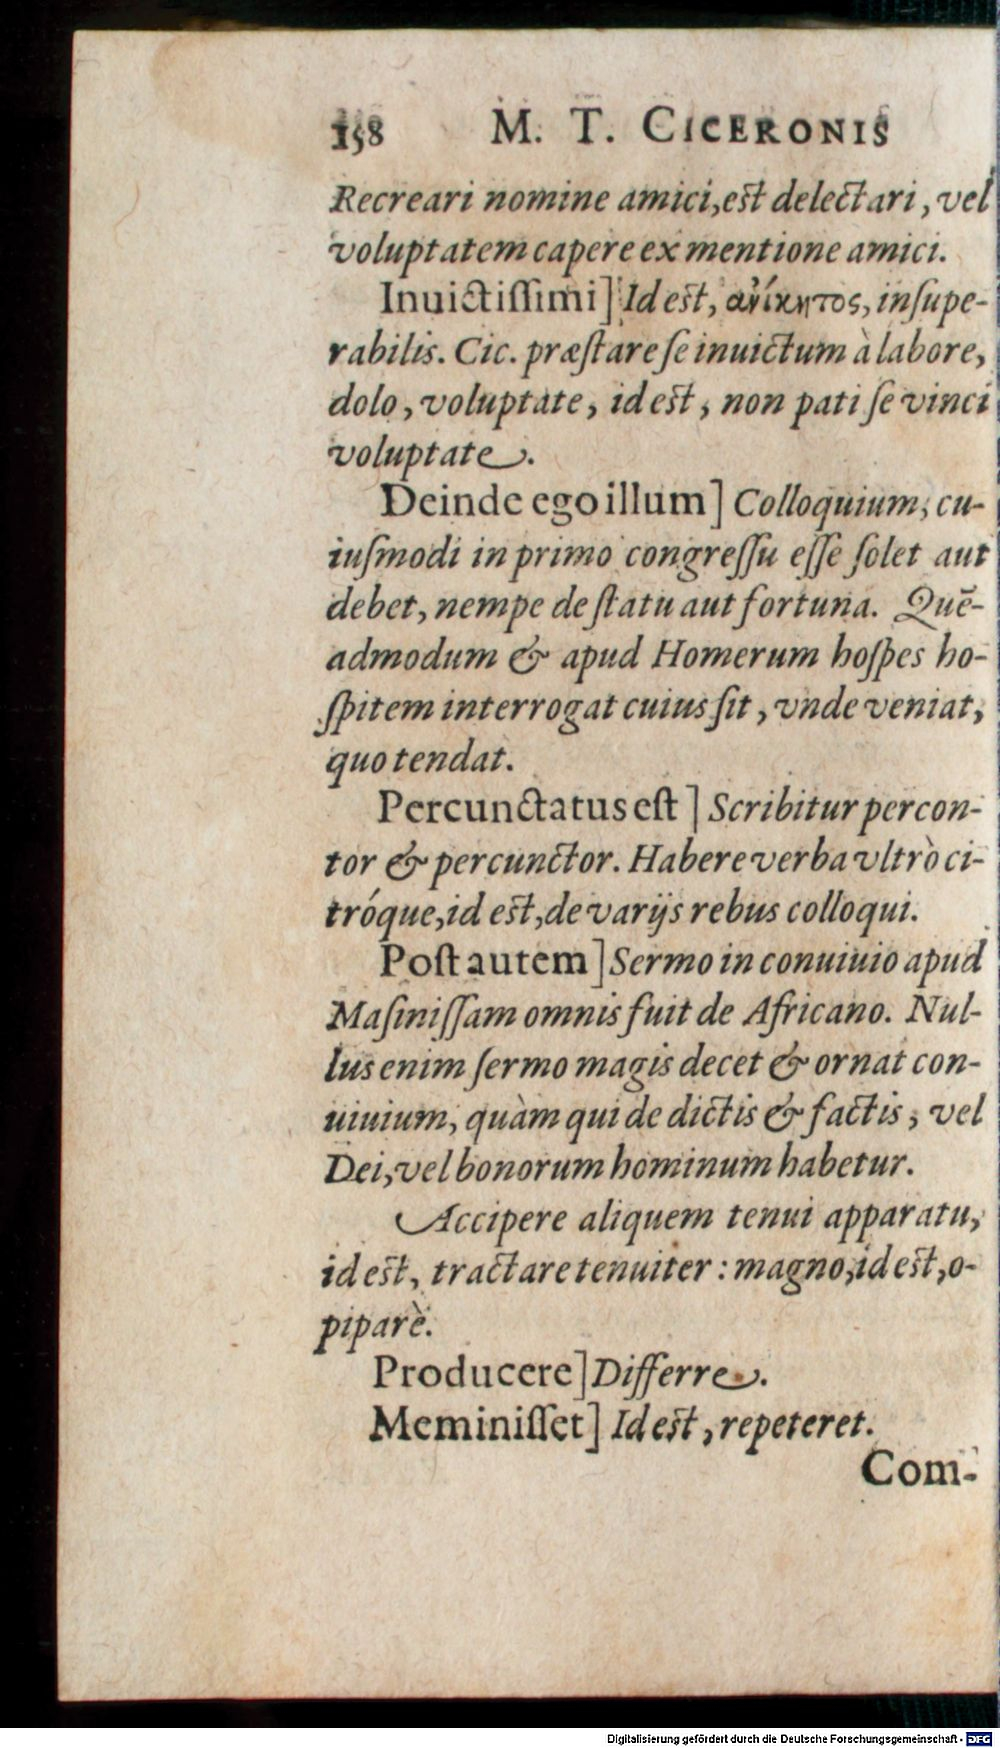 158 M. T. CICERONIS
Recreari nomine amici,est delectari, vel
voluptatem capere ex mentione amici.
Inuictiſſimi] Id est, ἀνίκητος, inſupe-
rabilis. Cic. præſtare ſe inuictum à labore,
dolo, voluptate, id est, non pati ſe vinci
voluptate.
Deinde ego illum] Colloquium, cu-
iuſmodi in primo congreſſu eſſe ſolet aut
debet, nempe de ſtatu aut fortuna. Quē-
admodum & apud Homerum hoſpes ho-
ſpitem interrogat cuius ſit, vnde veniat,
quo tendat.
Percunctatus eſt] Scribitur percon-
tor & percunctor. Habere verba vltrò ci-
tróque,id est,de varijs rebus colloqui.
Poſt autem] Sermo in conuiuio apud
Maſiniſſam omnis fuit de Africano. Nul-
lus enim ſermo magis decet & ornat con-
uiuium, quàm qui de dictis & factis, vel
Dei,vel bonorum hominum habetur.
Accipere aliquem tenui apparatu,
id est, tractare tenuiter : magno,id est,o-
piparè.
Producere] Differre.
Meminiſſet] Id est, repeteret.
Com-
Digitalisierung gefördert durch die Deutsche Forschungsgemeinschaft - DFG